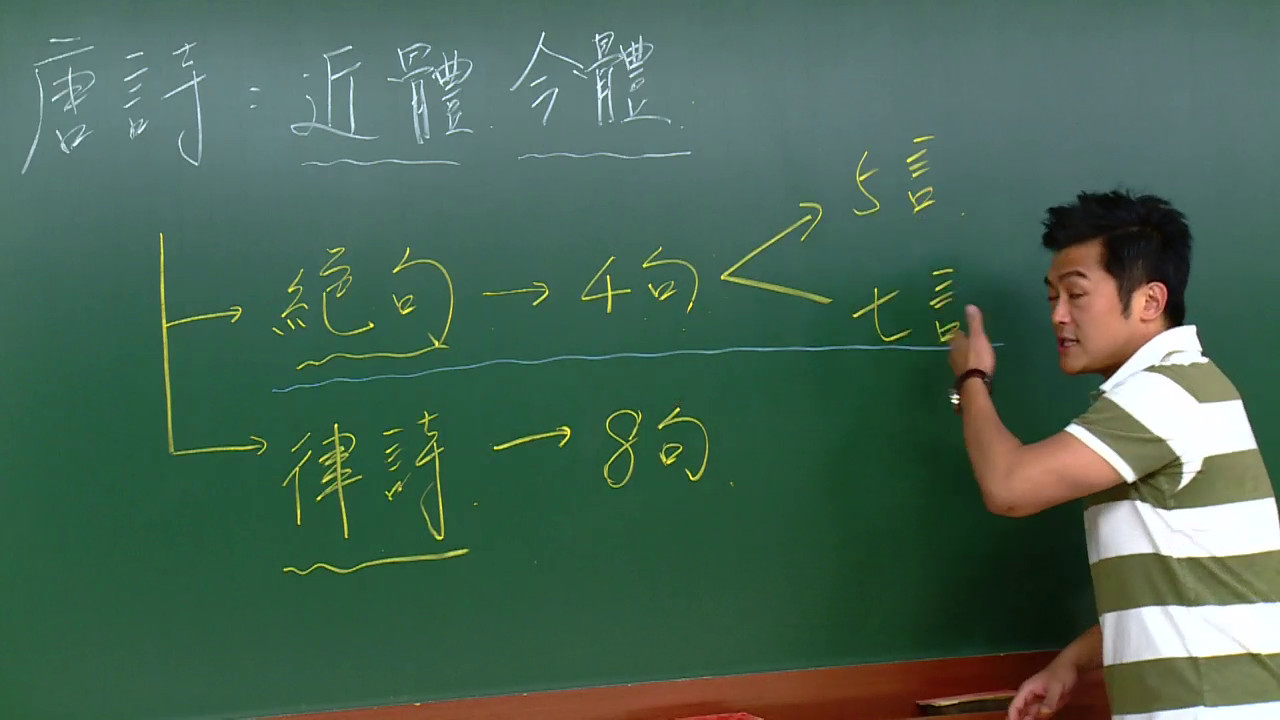 唐詩：近體.今體.
5言.
絕句→4句
七言
律詩.→8句.